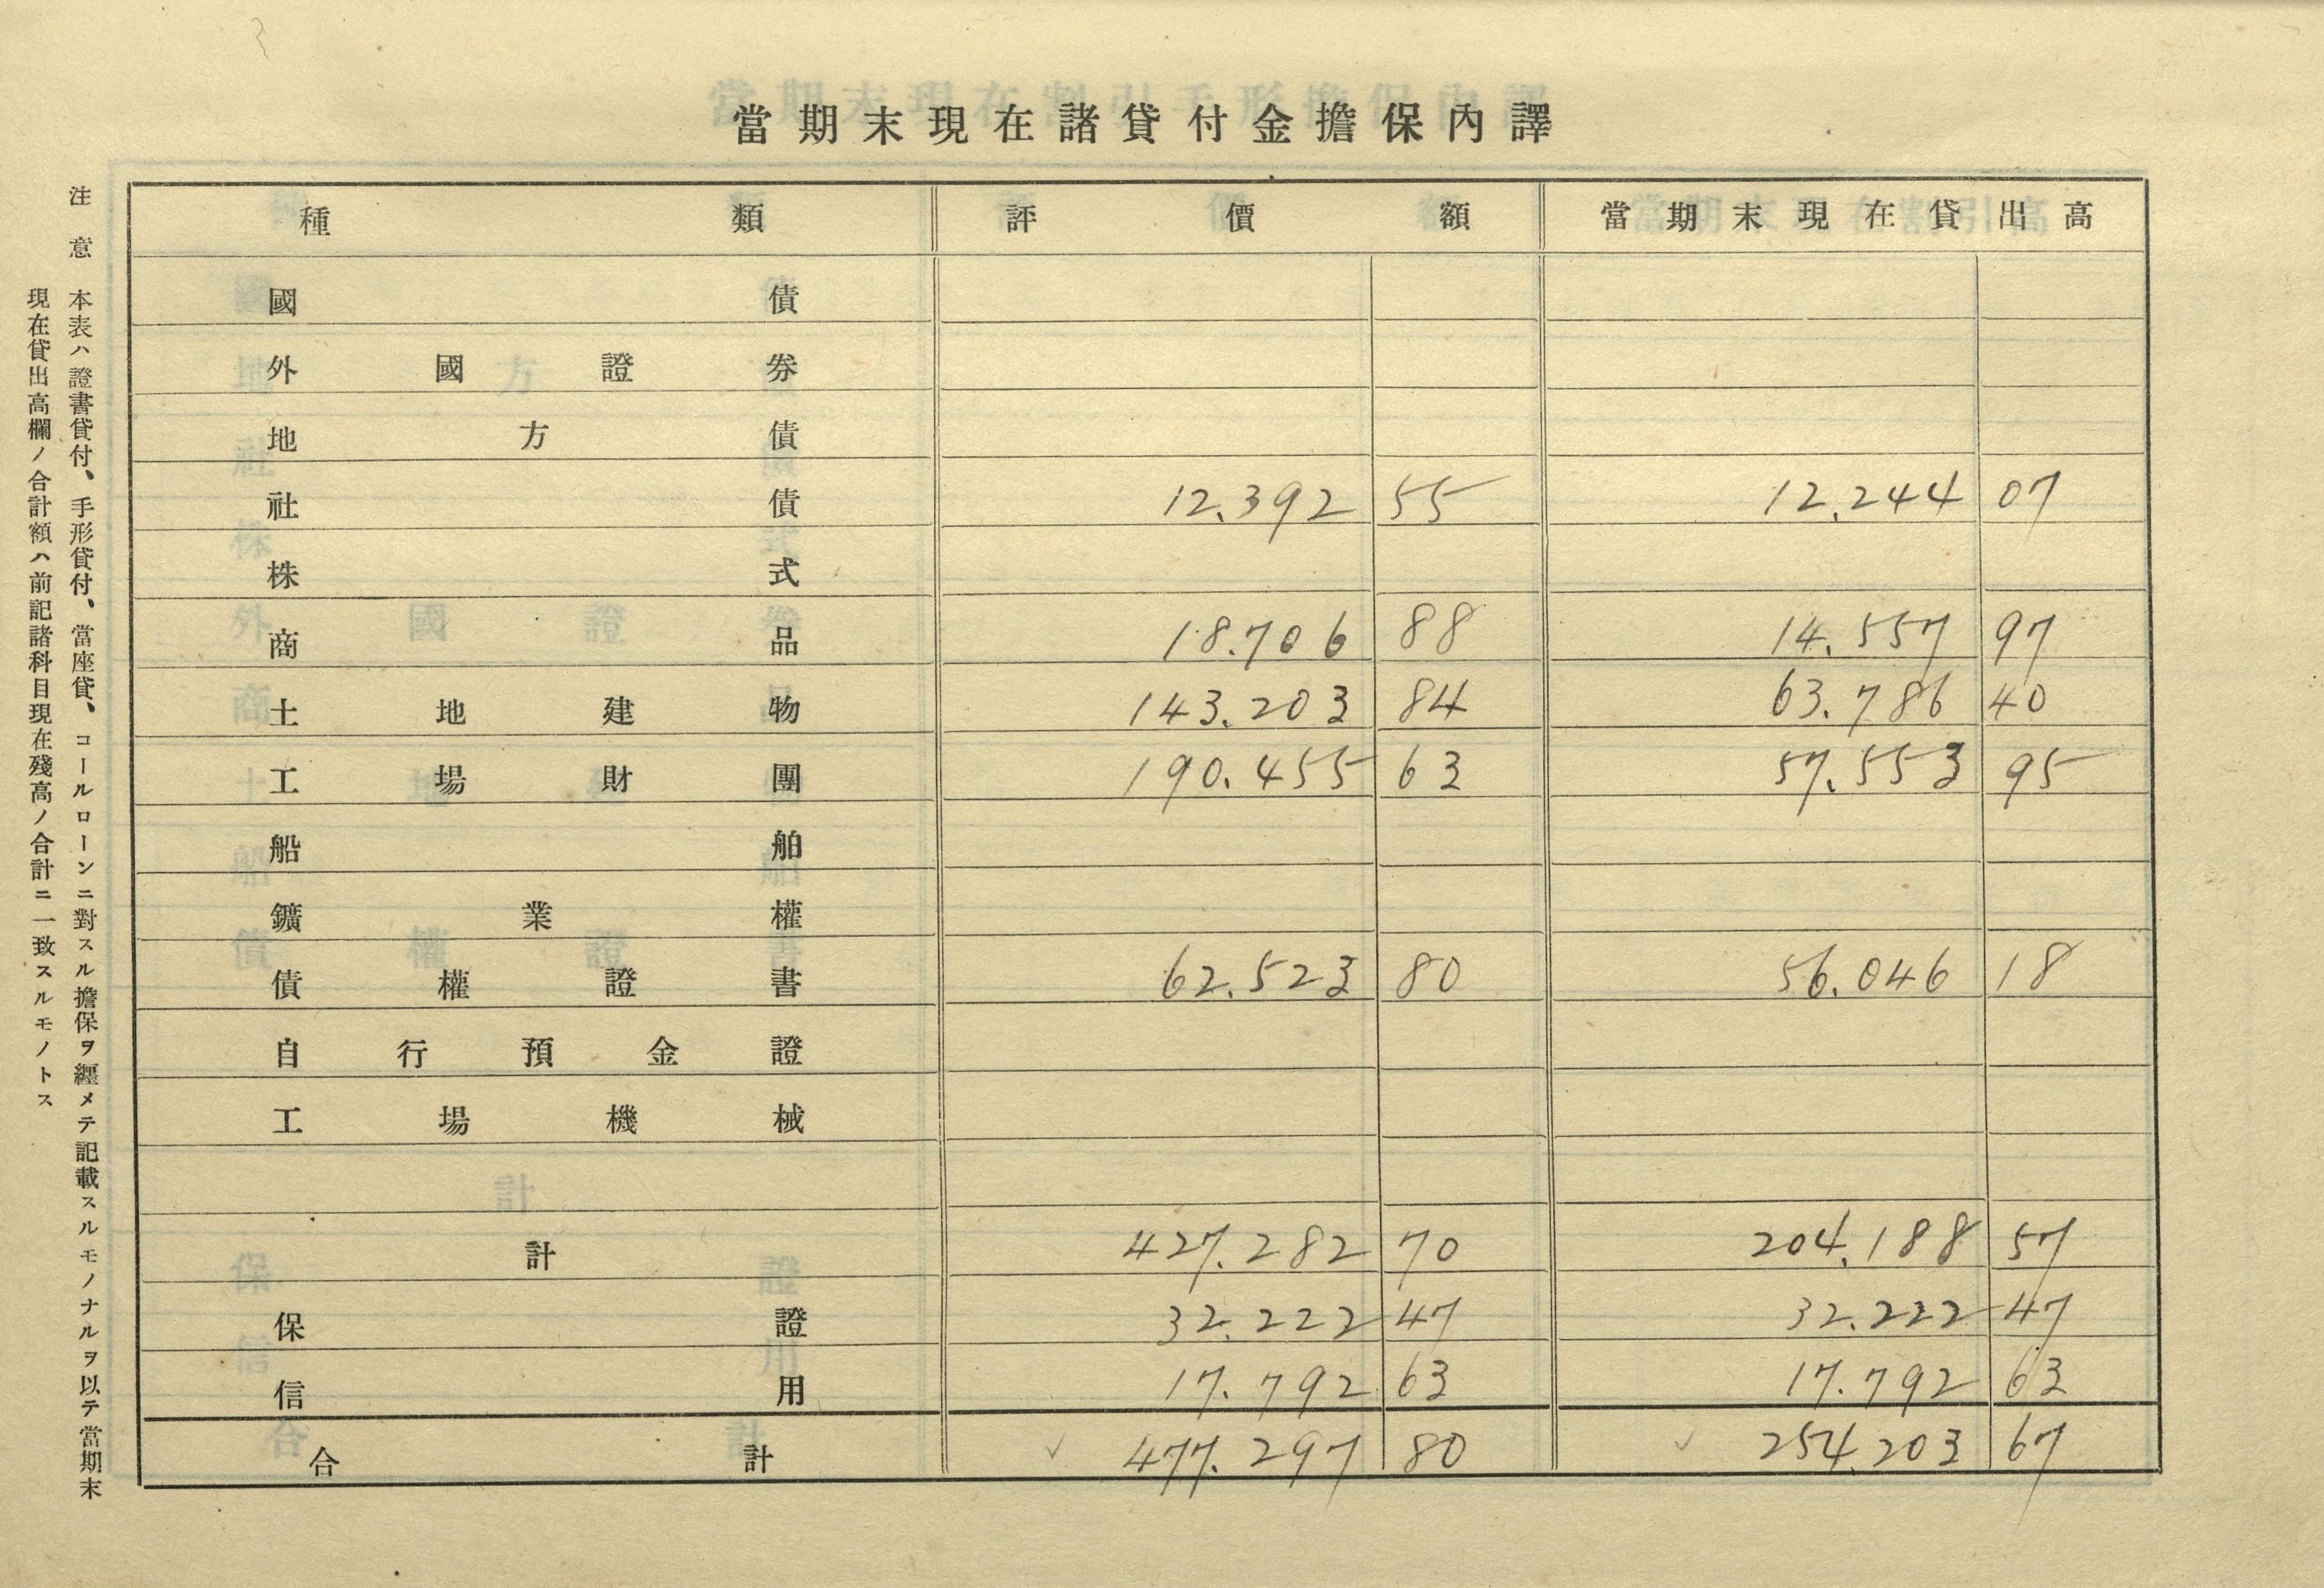 當期末現在諸貸付金擔保內譯
種類 評價額 當期末現在貸出高
國債
外國證券
地方債
社債 12.392 55 12.244 07
株式
商品 18.706 88 14.557 97
土地建物 143.203 84 63.786 40
工場財團 190.455 63 57.553 95
船舶
鑛業權
債權證書 62.523 80 56.046 18
自行預金證
工場機械
計 427.282 70 204.188 57
保證 32.222 47 32.222 47
信用 17.792 63 17.792 63
合計 477.297 80 254.203 67
注意 本表ハ證書貸付、手形貸付、當座貸、コールローンニ對スル擔保ヲ纒メテ記載スルモノナルヲ以テ當期末
現在貸出高欄ノ合計額ハ前記諸科目現在殘高ノ合計ニ一致スルモノトス